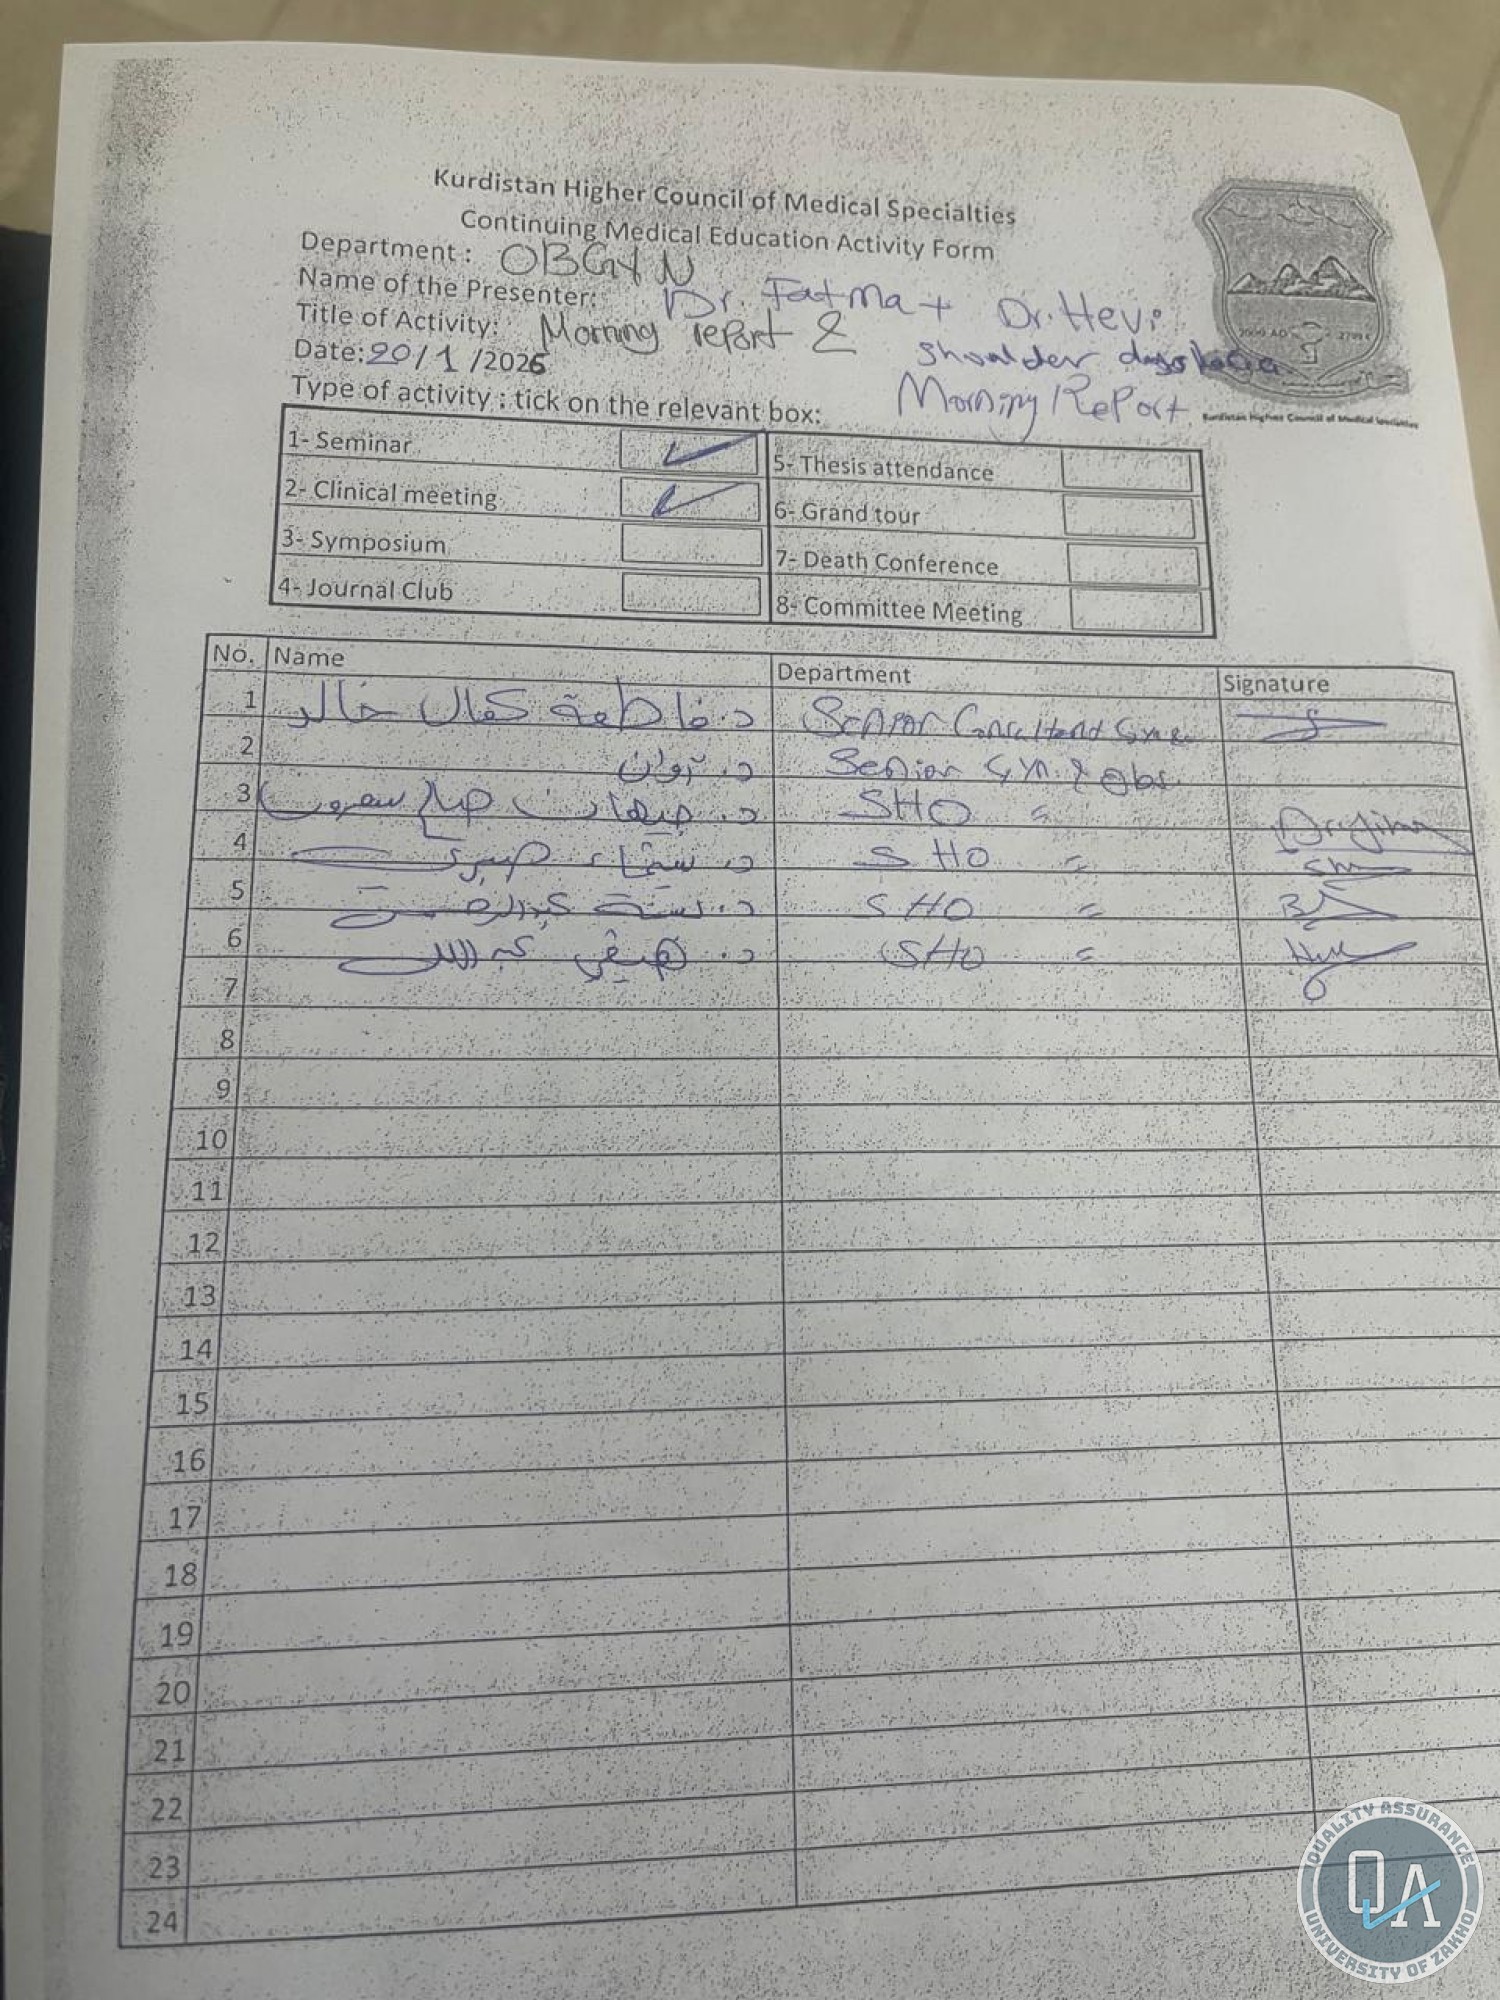 Kurdistan Higher Council of Medical Specialties
Continuing Medical Education Activity Form
Department : OBGYN
Name of the Presenter: Dr. Fatma + Dr. Hevi
Title of Activity: Morning report & shoulder
Date: 20/1/2026
Morning RePort
Type of activity : tick on the relevant box:
Kurdistan Higher Council of Medical Specialties
1- Seminar
5- Thesis attendance
2- Clinical meeting
6- Grand tour
3- Symposium
7- Death Conference
4- Journal Club
8- Committee Meeting
No. Name Department Signature
1 د. فاطمة كمال خالد Senior Consultant
2 د. Senior Gyn & obs.
3 د. SHO "
4 د. صبري SHO "
5 د. SHO "
6 د. هيڤي عبدالله SHO "
7
8
9
10
11
12
13
14
15
16
17
18
19
20
21
22
23
24
QUALITY ASSURANCE
QA
UNIVERSITY OF ZAKHO